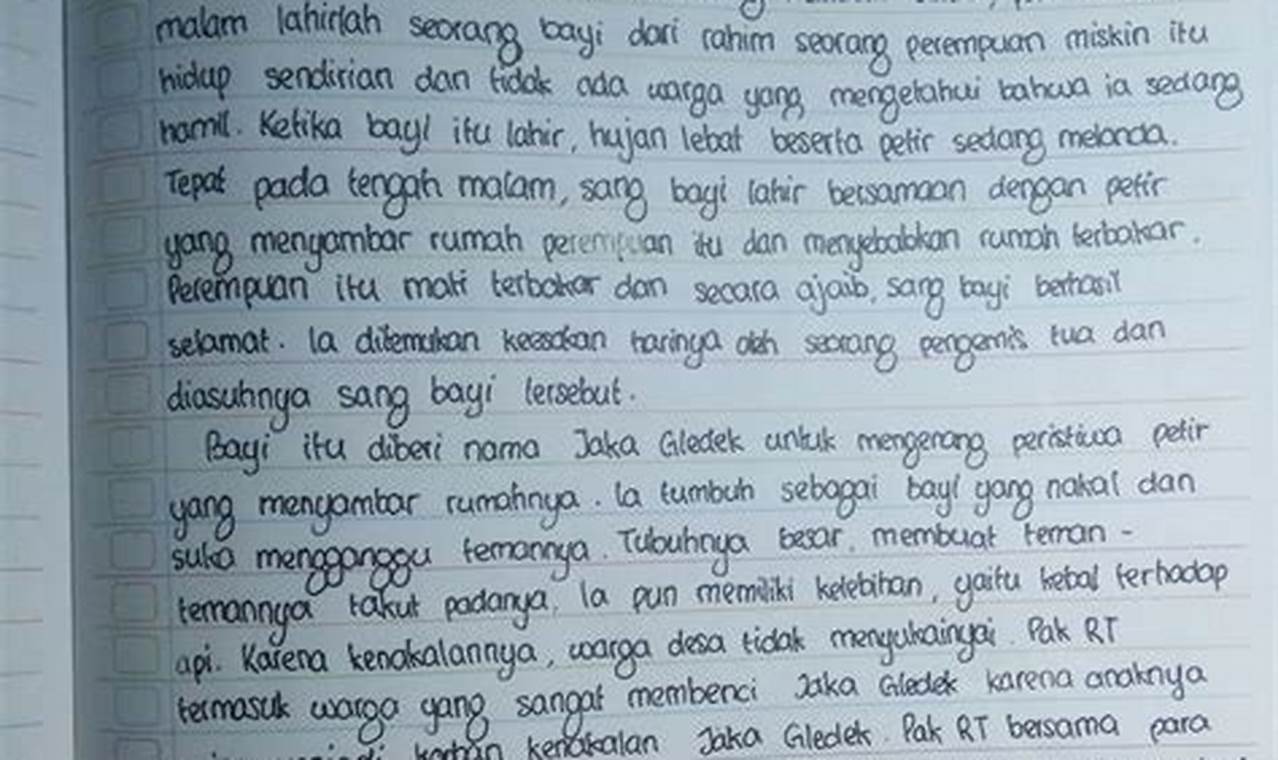 malam lahirlah seorang bayi dari rahim seorang perempuan miskin itu
hidup sendirian dan tidak ada warga yang mengetahui bahwa ia sedang
hamil. Ketika bayi itu lahir, hujan lebat beserta petir sedang melanda.
Tepat pada tengah malam, sang bayi lahir bersamaan dengan petir
yang menyambar rumah perempuan itu dan menyebabkan rumah terbakar.
Perempuan itu mati terbakar dan secara ajaib, sang bayi berhasil
selamat. Ia ditemukan keesokan harinya oleh seorang pengemis tua dan
diasuhnya sang bayi tersebut.
Bayi itu diberi nama Jaka Gledek untuk mengenang peristiwa petir
yang menyambar rumahnya. Ia tumbuh sebagai bayi yang nakal dan
suka mengganggu temannya. Tubuhnya besar, membuat teman-
temannya takut padanya. Ia pun memiliki kelebihan, yaitu kebal terhadap
api. Karena kenakalannya, warga desa tidak menyukainyai. Pak RT
termasuk warga yang sangat membenci Jaka Gledek karena anaknya
korban kenakalan Jaka Gledek. Pak RT bersama para